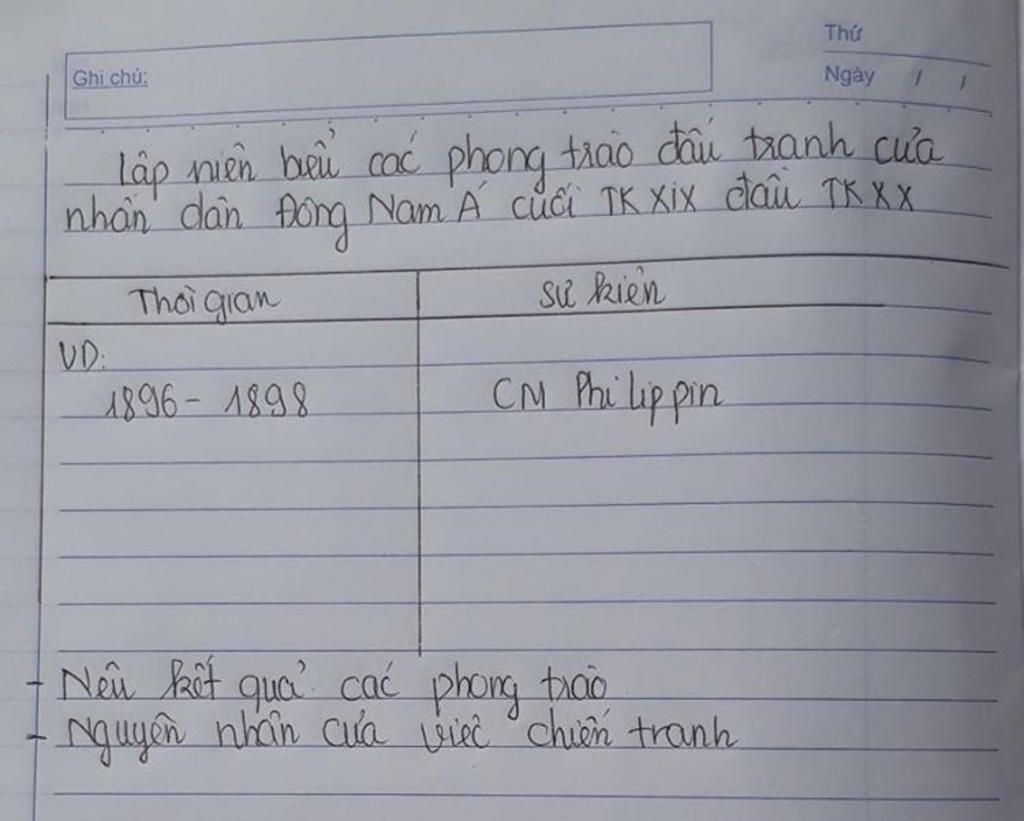 Thứ
Ghi chú:
Ngày / /
Lập niên biểu các phong trào đấu tranh của
nhân dân Đông Nam Á cuối TK XIX đầu TK XX
Thời gian
sự kiện
VD:
1896 - 1898
CM Philippin
- Nêu kết quả các phong trào
- Nguyên nhân của việc chiến tranh